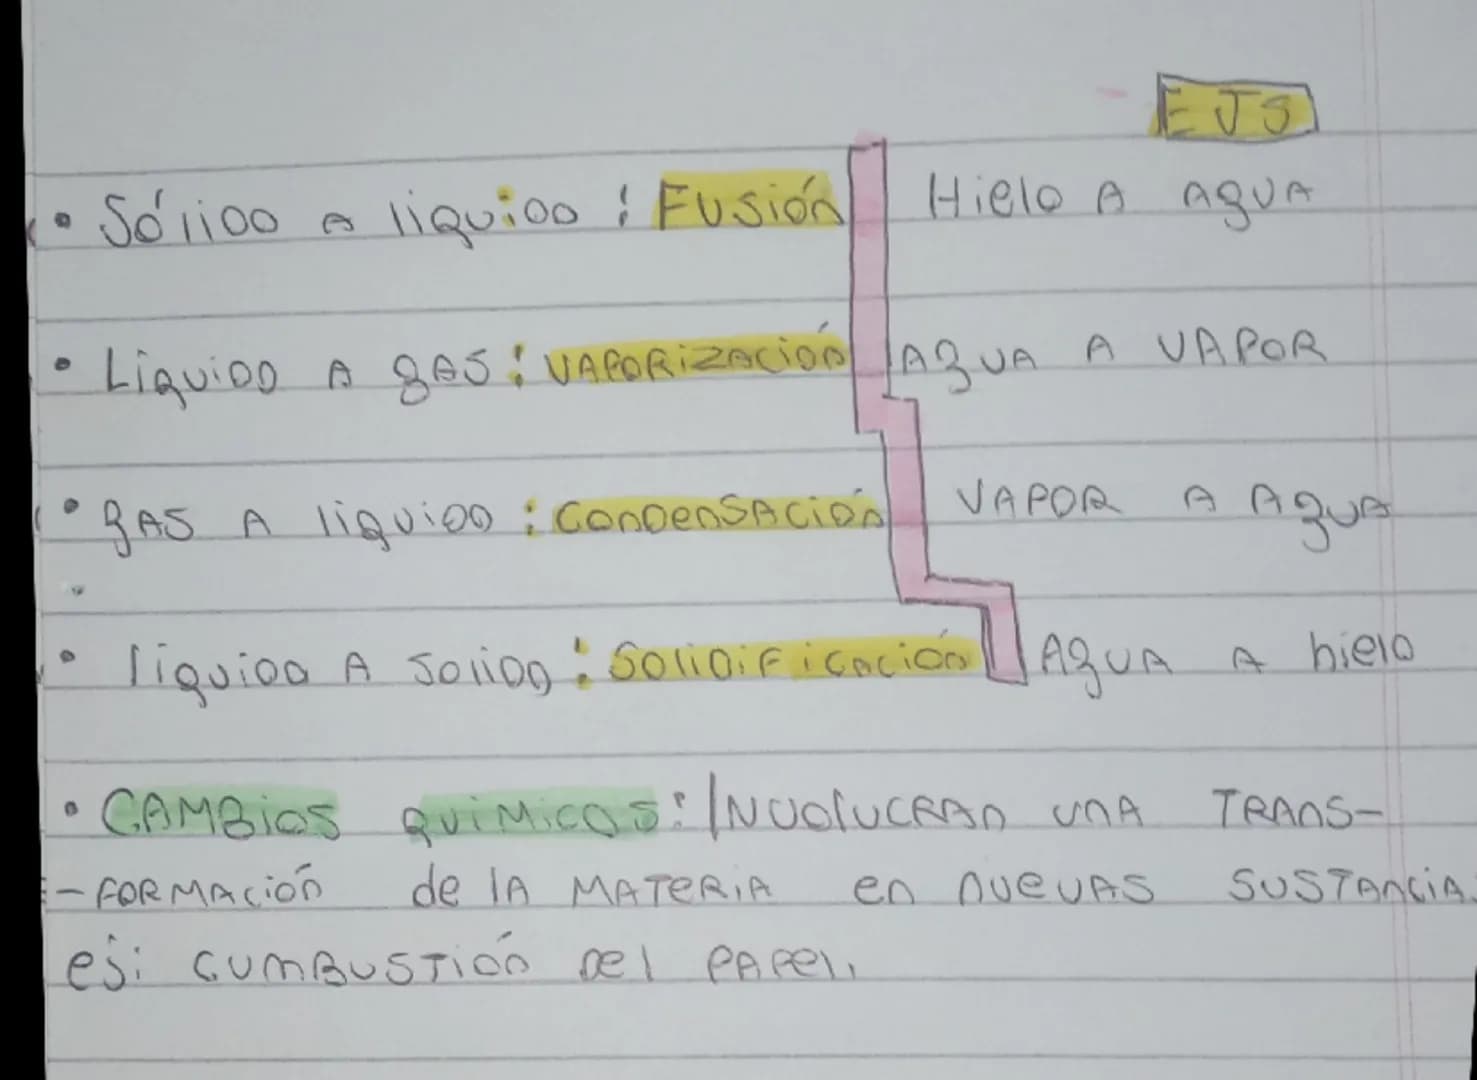 EJS
• Sólido A líquido : Fusión Hielo A AgUA
• Líquido A gAS : VAPORizACión AgUA A VAPOR
• gAS A líquido : CONDenSACión VAPOR A AgUA
• líquido A Solido : SoliDiFicación AgUA A hielo
• CAMBios quiMicos : INVOlUCRAn UnA TRAnS-
-FORMAción de lA MATeRiA en nueVAS SUSTAnciA
ej: CUMBUSTión Del PAPel.